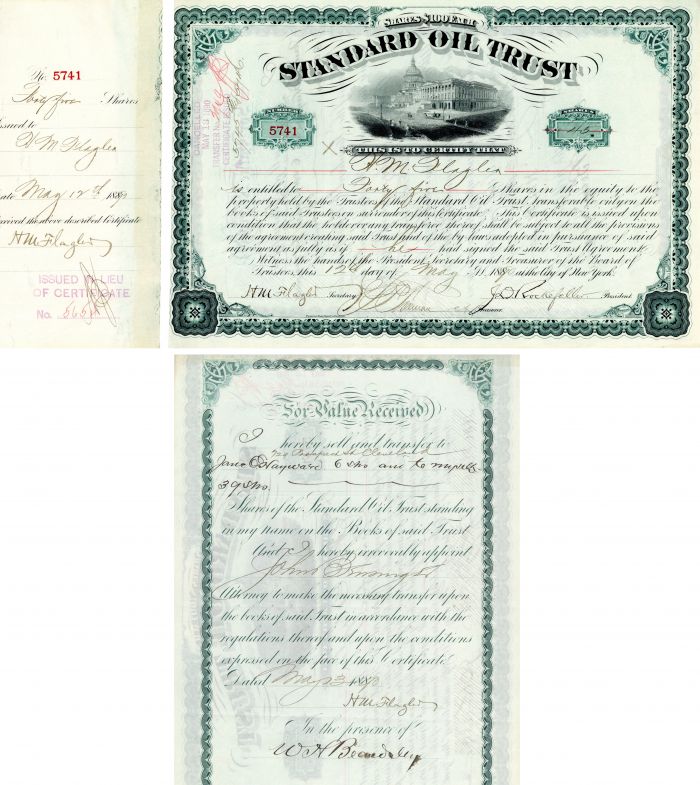 No. 5741
Forty five Shares
Issued to
H M Flagler
Date May 12th 188
Received the above described Certificate
H M Flagler
ISSUED IN LIEU
OF CERTIFICATE
No.
SHARES $100 EACH
STANDARD OIL TRUST
NUMBER
5741
SHARES
45
CANCELLED
TRANSFER No.
CERTIFICATE
THIS IS TO CERTIFY THAT
H M Flagler
is entitled to Forty five Shares in the equity to the
property held by the Trustees of the Standard Oil Trust, transferable only on the
books of said Trustees on surrender of this Certificate. This Certificate is issued upon
condition that the holder or any transferee thereof shall be subject to all the provisions
of the agreement creating said Trust and of the by-laws adopted in pursuance of said
agreement as fully as if he had signed the said Trust Agreement.
Witness the hands of the President, Secretary and Treasurer of the Board of
Trustees, this 12th day of May A.D. 188 at the city of New York.
H M Flagler Secretary Treasurer J D Rockefeller President
For Value Received
I hereby sell and transfer to
Cleveland
Jane C Hayward 6 shs and to myself
39 shs.
Shares of the Standard Oil Trust standing
in my name on the Books of said Trust
And I hereby irrevocably appoint
Attorney to make the necessary transfer upon
the books of said Trust in accordance with the
regulations thereof and upon the conditions
expressed on the face of this Certificate.
Dated May 23 188
H M Flagler
In the presence of
W H Beardsley